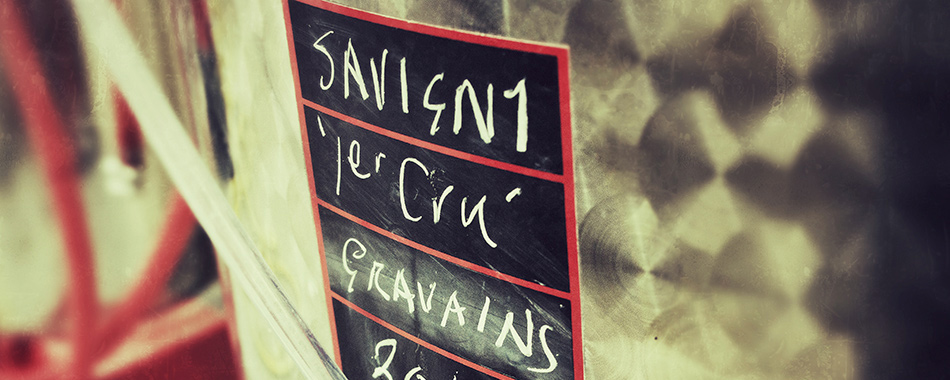 SAVIGNY
1er Cru
GRAVAINS